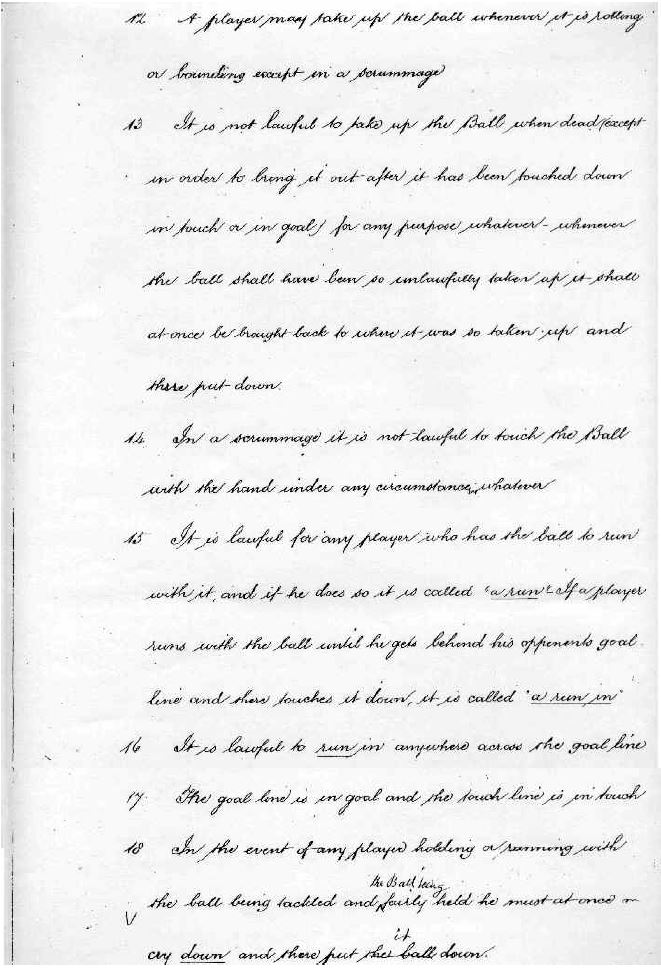 12 A player may take up the ball whenever it is rolling
or bounding except in a scrummage
13 It is not lawful to take up the Ball when dead (except
in order to bring it out after it has been touched down
in touch or in goal) for any purpose whatever - whenever
the ball shall have been so unlawfully taken up it shall
at once be brought back to where it was so taken up and
there put down.
14 In a scrummage it is not lawful to touch the Ball
with the hand under any circumstances whatever
15 It is lawful for any player who has the ball to run
with it, and if he does so it is called "a run" - If a player
runs with the ball until he gets behind his opponents goal
line and there touches it down, it is called "a run in"
16 It is lawful to run in anywhere across the goal line
17 The goal line is in goal and the touch line is in touch
18 In the event of any player holding or running with
the Ball being
the ball being tackled and fairly held he must at once
it
cry down and there put the ball down.